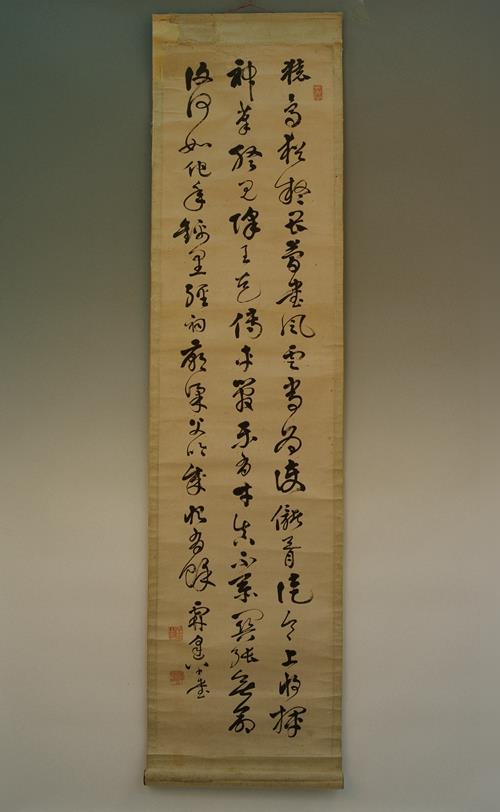 猿鳥猶疑畏簡書風雲常為護儲胥徒令上將揮
神筆終見降王走傳車管樂有才真不忝關張無命
欲何如他年錦里經祠廟梁父吟成恨有餘